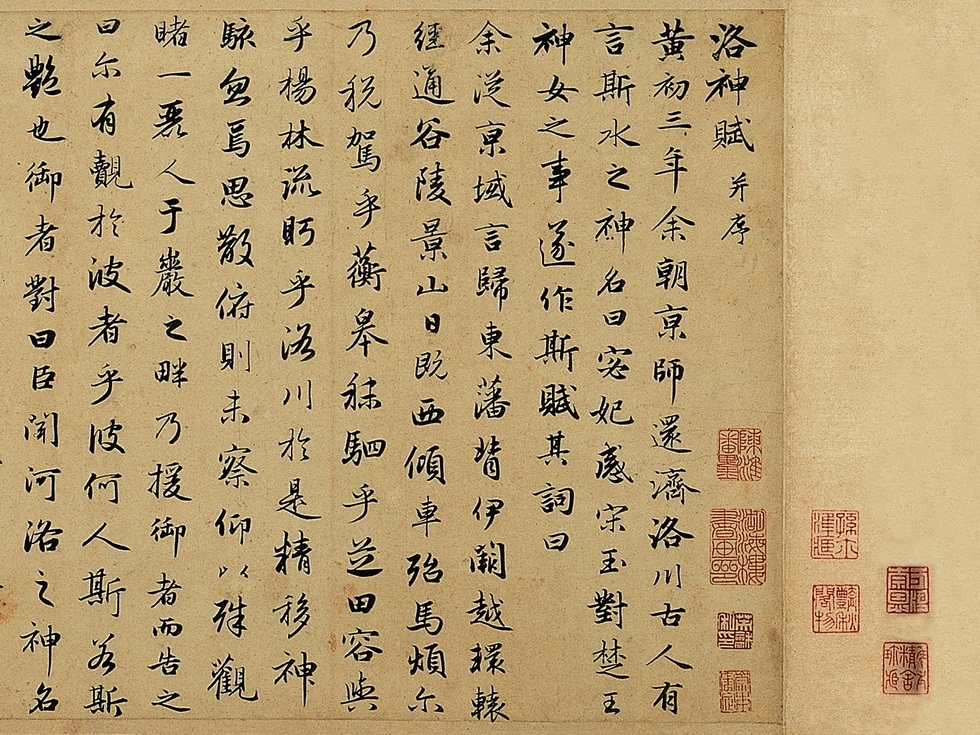 洛神賦 并序
黃初三年余朝京師還濟洛川古人有
言斯水之神名曰宓妃感宋玉對楚王
神女之事遂作斯賦其詞曰
余從京域言歸東藩背伊闕越環轅
經通谷陵景山日既西傾車殆馬煩尔
乃稅駕乎蘅皋秣駟乎芝田容與
乎楊林流眄乎洛川於是精移神
駭忽焉思散俯則未察仰以殊觀
睹一麗人于巖之畔乃援御者而告之
曰尔有覿於彼者乎彼何人斯若斯
之豔也御者對曰臣聞河洛之神名